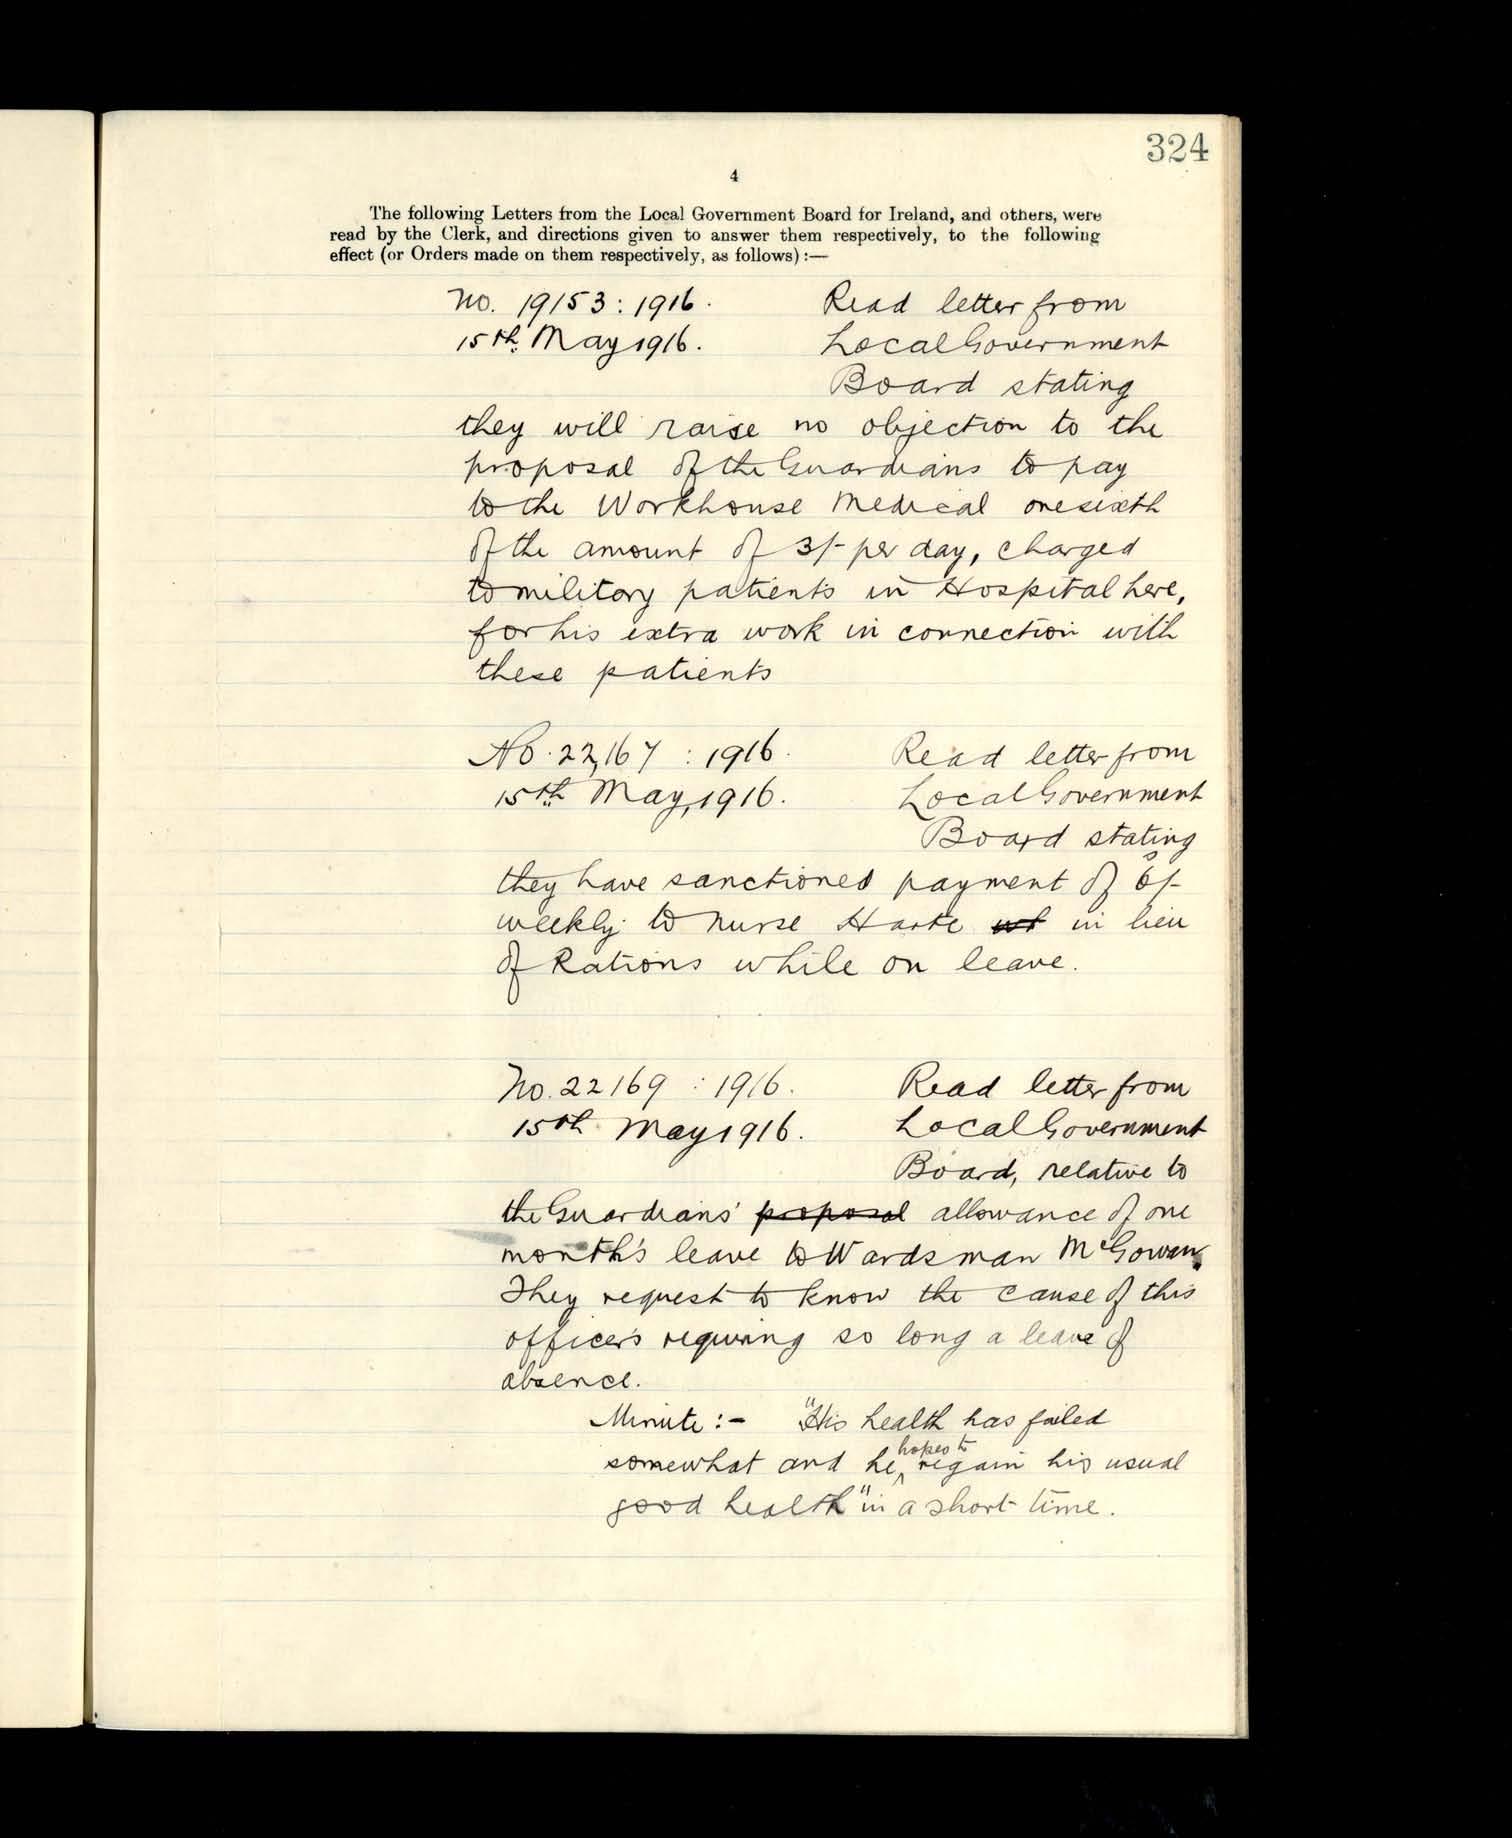 324
4
The following Letters from the Local Government Board for Ireland, and others, were
read by the Clerk, and directions given to answer them respectively, to the following
effect (or Orders made on them respectively, as follows):—
No. 19153: 1916. Read letter from
15th. May 1916. Local Government
Board stating
they will raise no objection to the
proposal of the Guardians to pay
to the Workhouse Medical one sixth
of the amount of 3/- per day, charged
to military patients in Hospital here,
for his extra work in connection with
these patients
No. 22,167 : 1916. Read letter from
15th May, 1916. Local Government
Board stating
they have sanctioned payment of 6s/-
weekly to Nurse Harte in lieu
of Rations while on leave.
No. 22169 : 1916. Read letter from
15th May 1916. Local Government
Board, relative to
the Guardians' proposal allowance of one
month's leave to Wardsman McGowan.
They request to know the cause of this
officer's requiring so long a leave of
absence.
Minute:- "His health has failed
somewhat and he hopes to regain his usual
good health" in a short time.